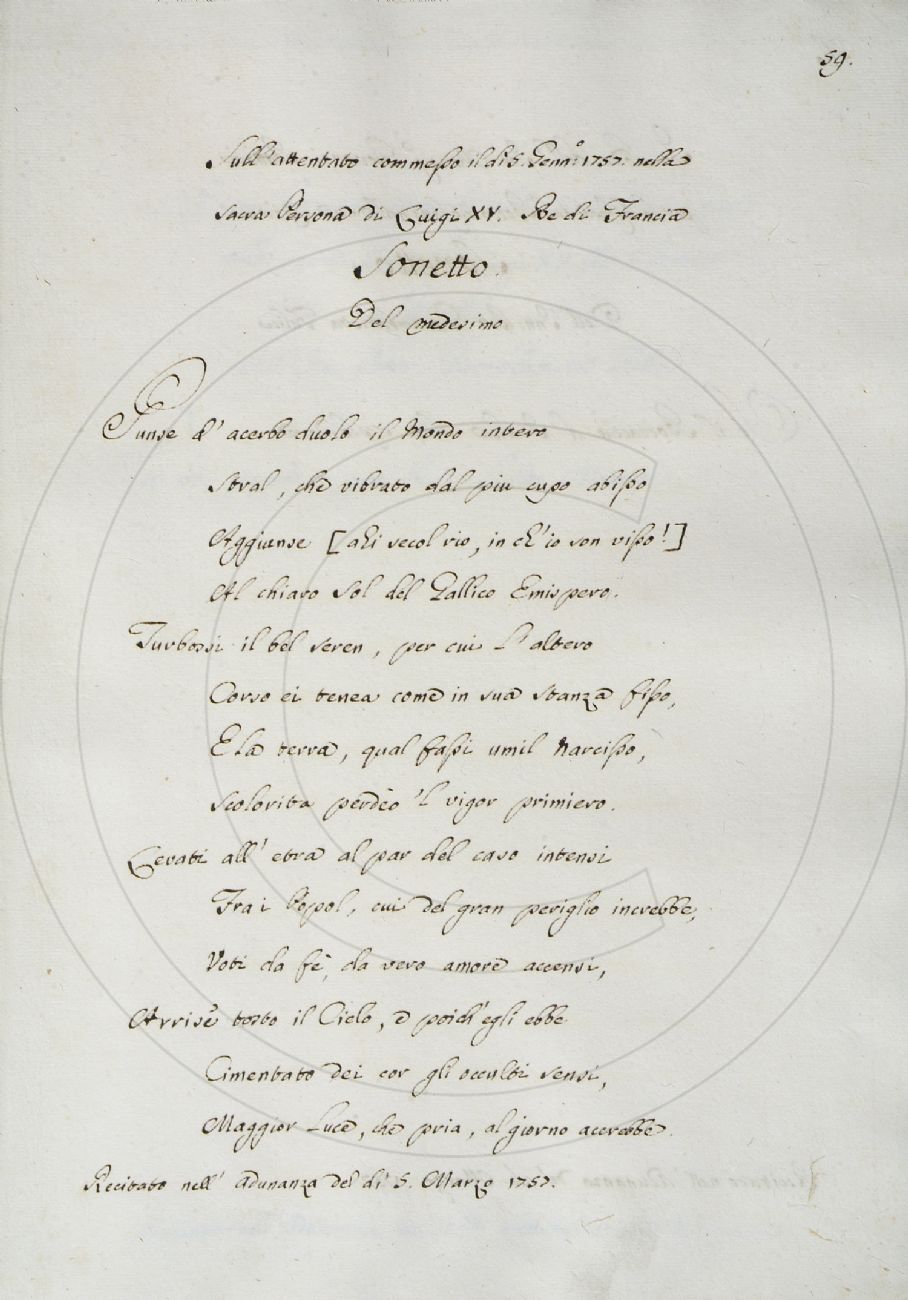 59.
Sull'attentato commesso il dì 5. Genn.º 1757. nella
sacra Persona di Luigi XV. Re di Francia
Sonetto.
Del medesimo
Punse d'acerbo duolo il Mondo intero
Stral, che vibrato dal piu cupo abisso
Aggiunse [ahi secol rio, in ch'io son visso!]
Al chiaro Sol del Gallico Emispero.
Turbossi il bel seren, per cui l'altero
Corso ei tenea come in sua stanza fisso,
E la terra, qual fassi umil Narcisso,
Scolorita perdèo 'l vigor primiero.
Levati all'etra al par del caso intensi
Fra i Popol, cui del gran periglio increbbe,
Voti da fè, da vero amore accensi,
Arrise tosto il Cielo, e poich'egli ebbe
Cimentato dei cor gli occulti sensi,
Maggior Luce, che pria, al giorno accrebbe.
Recitato nell'adunanza del dì 5. Marzo 1757.